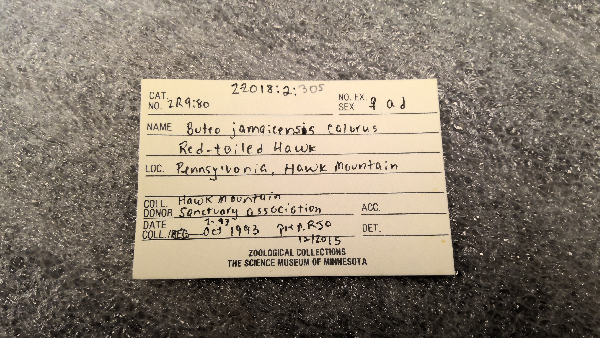 22018:2:305
CAT. NO. ZR9:80
NO. EX. SEX ♀ ad
NAME Buteo jamaicensis calurus
Red-tailed Hawk
LOC. Pennsylvania, Hawk Mountain
COLL. DONOR Hawk Mountain
Sanctuary association ACC.
DATE COLL./REC. Oct 1993 prep. RJO DET.
12/2015
ZOOLOGICAL COLLECTIONS
THE SCIENCE MUSEUM OF MINNESOTA